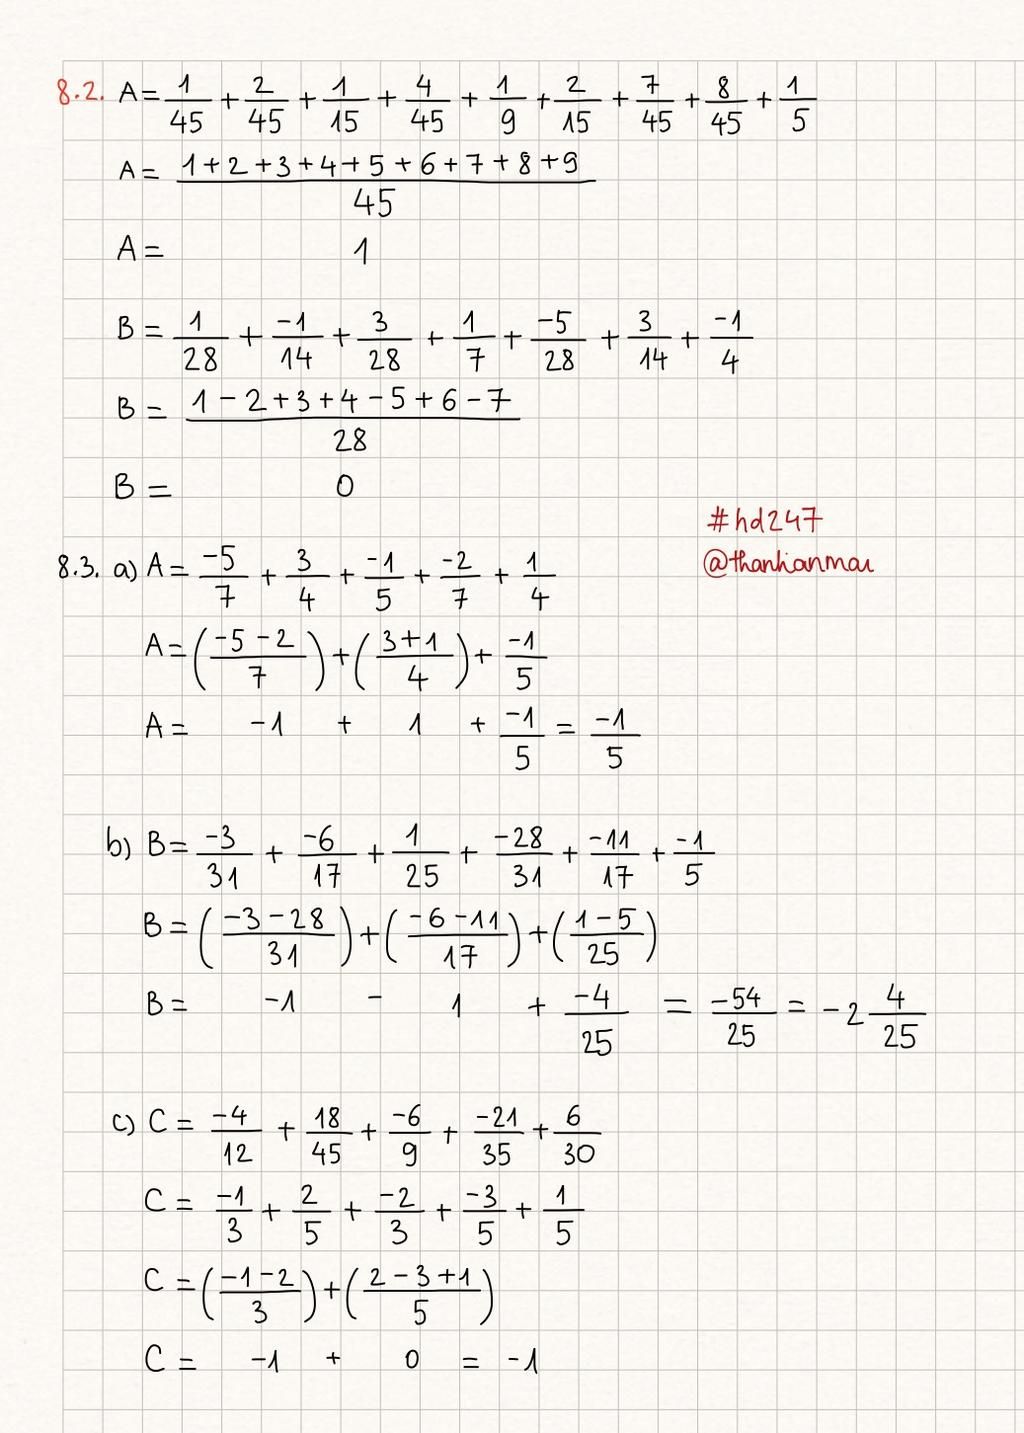 8.2. A = 1/45 + 2/45 + 1/15 + 4/45 + 1/9 + 2/15 + 7/45 + 8/45 + 1/5
A = (1+2+3+4+5+6+7+8+9)/45
A = 1
B = 1/28 + -1/14 + 3/28 + 1/7 + -5/28 + 3/14 + -1/4
B = (1-2+3+4-5+6-7)/28
B = 0
#hd247
@thanhanmai
8.3. a) A = -5/7 + 3/4 + -1/5 + -2/7 + 1/4
A = ((-5-2)/7) + ((3+1)/4) + -1/5
A = -1 + 1 + -1/5 = -1/5
b) B = -3/31 + -6/17 + 1/25 + -28/31 + -11/17 + -1/5
B = ((-3-28)/31) + ((-6-11)/17) + ((1-5)/25)
B = -1 - 1 + -4/25 = -54/25 = -2 4/25
c) C = -4/12 + 18/45 + -6/9 + -21/35 + 6/30
C = -1/3 + 2/5 + -2/3 + -3/5 + 1/5
C = ((-1-2)/3) + ((2-3+1)/5)
C = -1 + 0 = -1